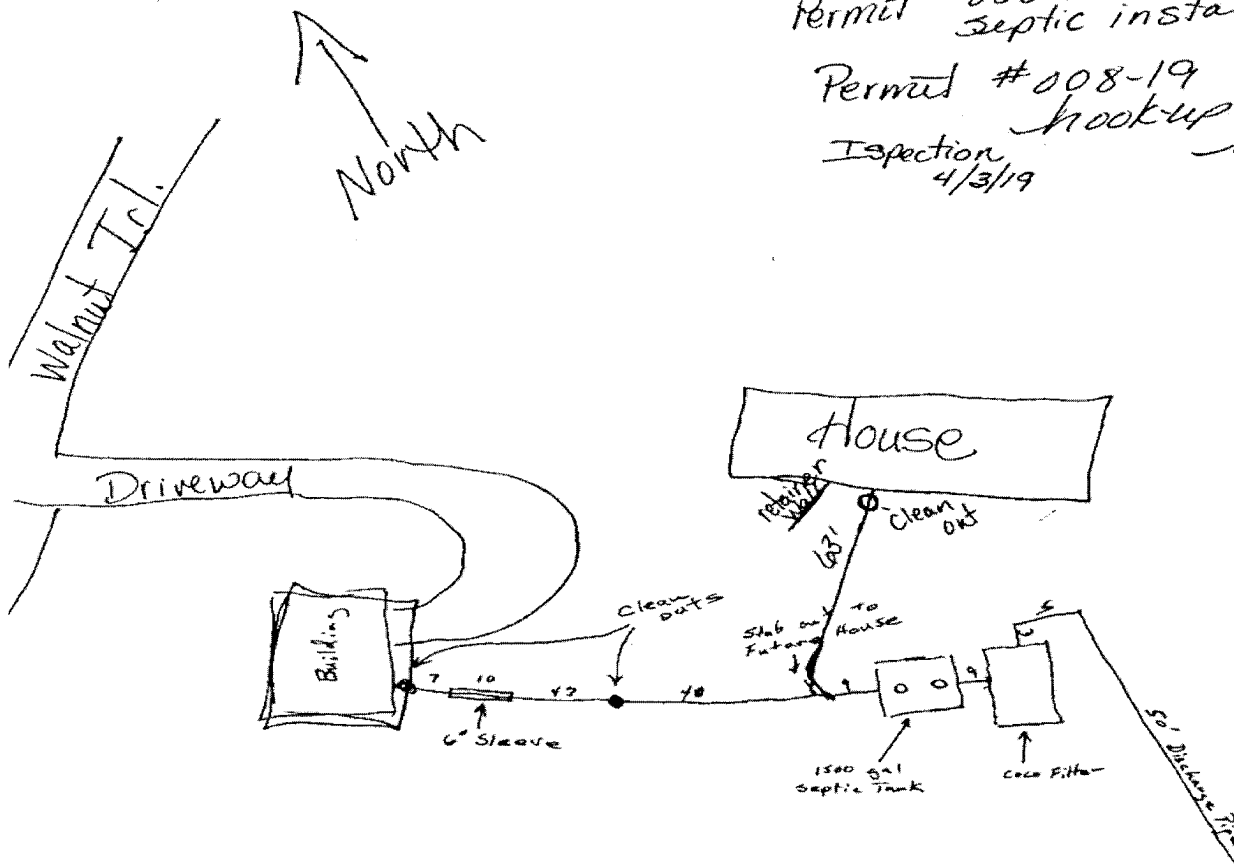 Permit
septic insta
Permit #008-19
hook-up
Ispection
4/3/19
North
Walnut Trl.
Driveway
House
retainer
wall
Clean
out
63'
Building
Clean
outs
Stub out To
Future House
7
10
6" Sleeve
9
9
5
1500 gal
septic Tank
Coco Filter
50' Discharge Pipe